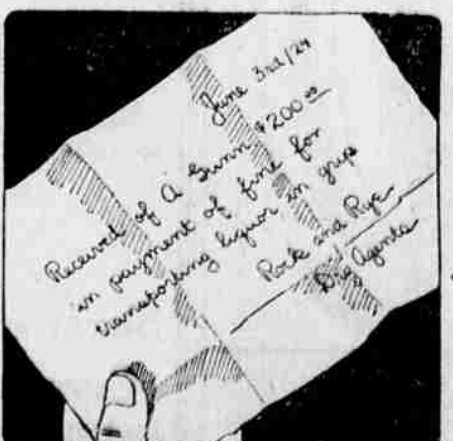 June 3rd/24
Received of A Gunn $200 00
in payment of fine for
transporting liquor in grip
Rock and Rye
Dry Agents